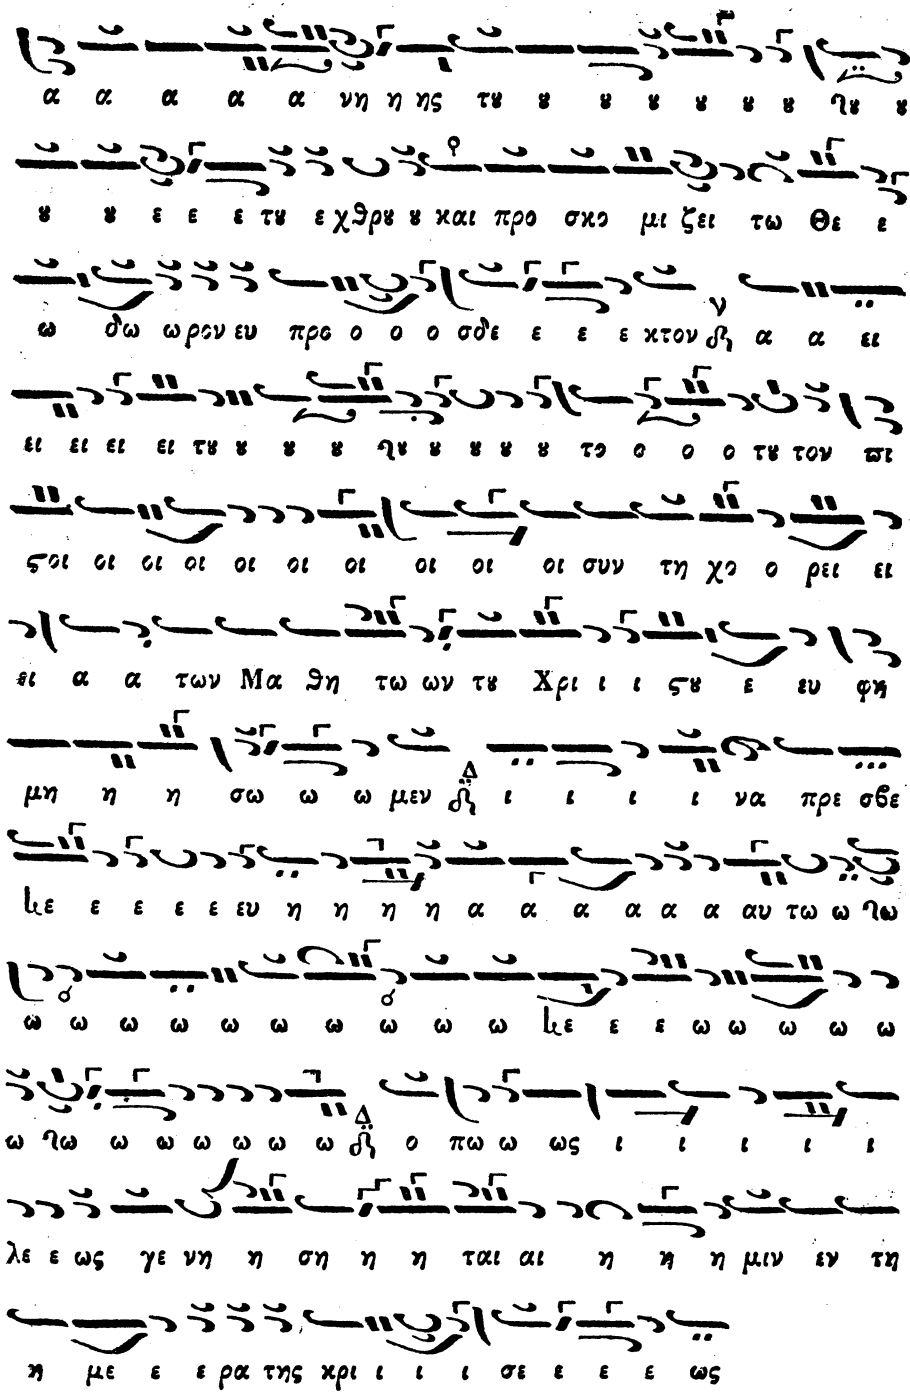 α α α α α νη η ης τȣ ȣ ȣ ȣ ȣ ȣ ȣ ȣ ȣ
ȣ ȣ ε ε ε τȣ ε χθρȣ ȣ και προ σκο μι ζει τω Θε ε
ω δω ω ρον ευ προ ο ο ο σδε ε ε ε κτον α α ει
ει ει ει ει τȣ ȣ ȣ ȣ ȣ ȣ ȣ ȣ ȣ το ο ο ο τȣ τον πι
ϛοι οι οι οι οι οι οι οι οι οι συν τη χο ο ρει ει
ει α α των Μα θη τω ων τȣ Χρι ι ι ϛȣ ε ευ φη
μη η η σω ω ω μεν Δ ι ι ι ι να πρε σβε
ε ε ε ε ευ η η η η α α α α α α αυ τω ω
ω ω ω ω ω ω ω ω ω ω ε ε ω ω ω ω ω
ω ω ω ω ω ω ω Δ ο πω ω ως ι ι ι ι ι
λε ε ως γε νη η ση η η ται αι η η η μιν εν τη
η με ε ε ρα της κρι ι ι ι σε ε ε ε ως